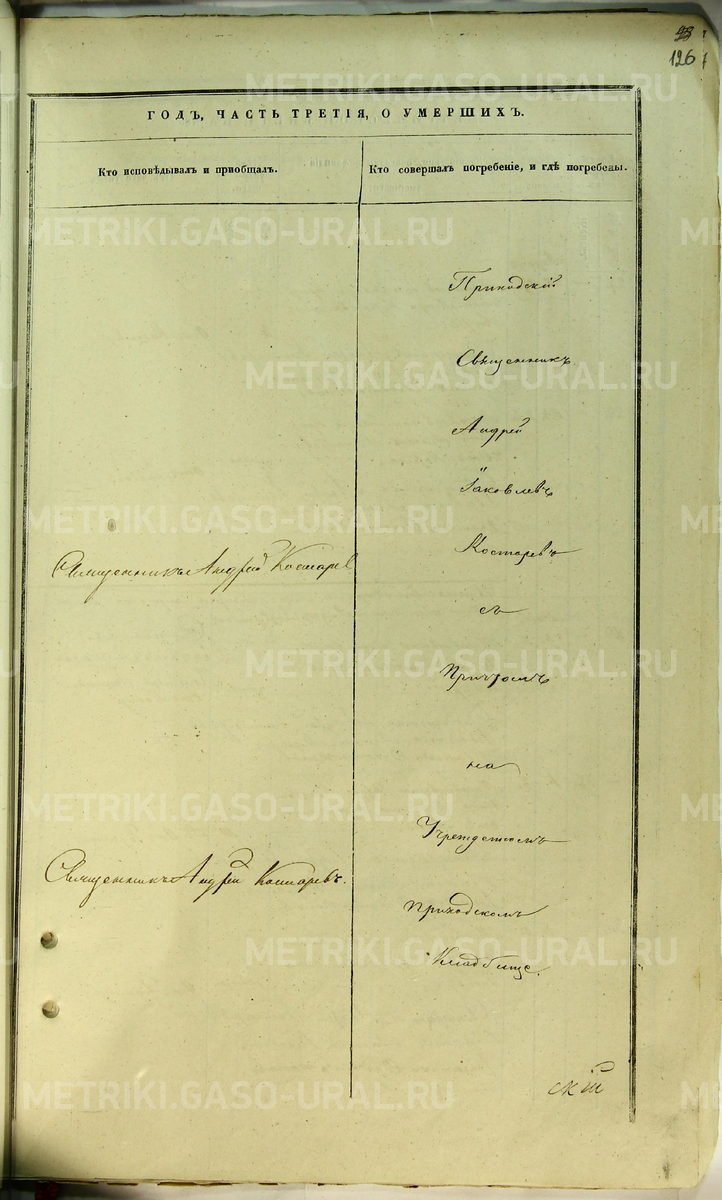 126
ГОДЪ, ЧАСТЬ ТРЕТІЯ, О УМЕРШИХЪ.
Кто исповѣдывалъ и пріобщалъ.
Кто совершалъ погребеніе, и гдѣ погребены.
Священникъ Андрей Костарев
Священникъ Андрей Костаревъ.
Приходскій
Священникъ
Андрей
Іаковлевъ
Костаревъ
съ
Причтомъ
на
Учрежденомъ
Приходскомъ
Кладбище.
скій
METRIKI.GASO-URAL.RU
METRIKI.GASO-URAL.RU
METRIKI.GASO-URAL.RU
METRIKI.GASO-URAL.RU
METRIKI.GASO-URAL.RU
METRIKI.GASO-URAL.RU
METRIKI.GASO-URAL.RU
METRIKI.GASO-URAL.RU